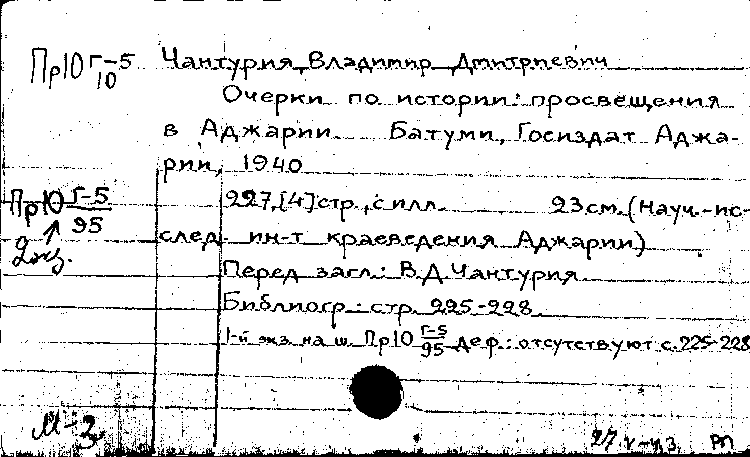 Пр10 Г-5/10 Чантурия, Владимир Дмитриевич
Очерки по истории просвещения
в Аджарии. Батуми, Госиздат Аджа-
рии, 1940
Пр10 Г-5/95
2 экз.
227, [4] стр., с илл. 23 см. (Науч.-ис-
след. ин-т краеведения Аджарии)
Перед загл.: В.Д. Чантурия
Библиогр.: стр. 225-228.
1-й экз. на ш. Пр10 Г-5/95 деф.: отсутствуют с. 225-228
М-3
27. V-43. РП